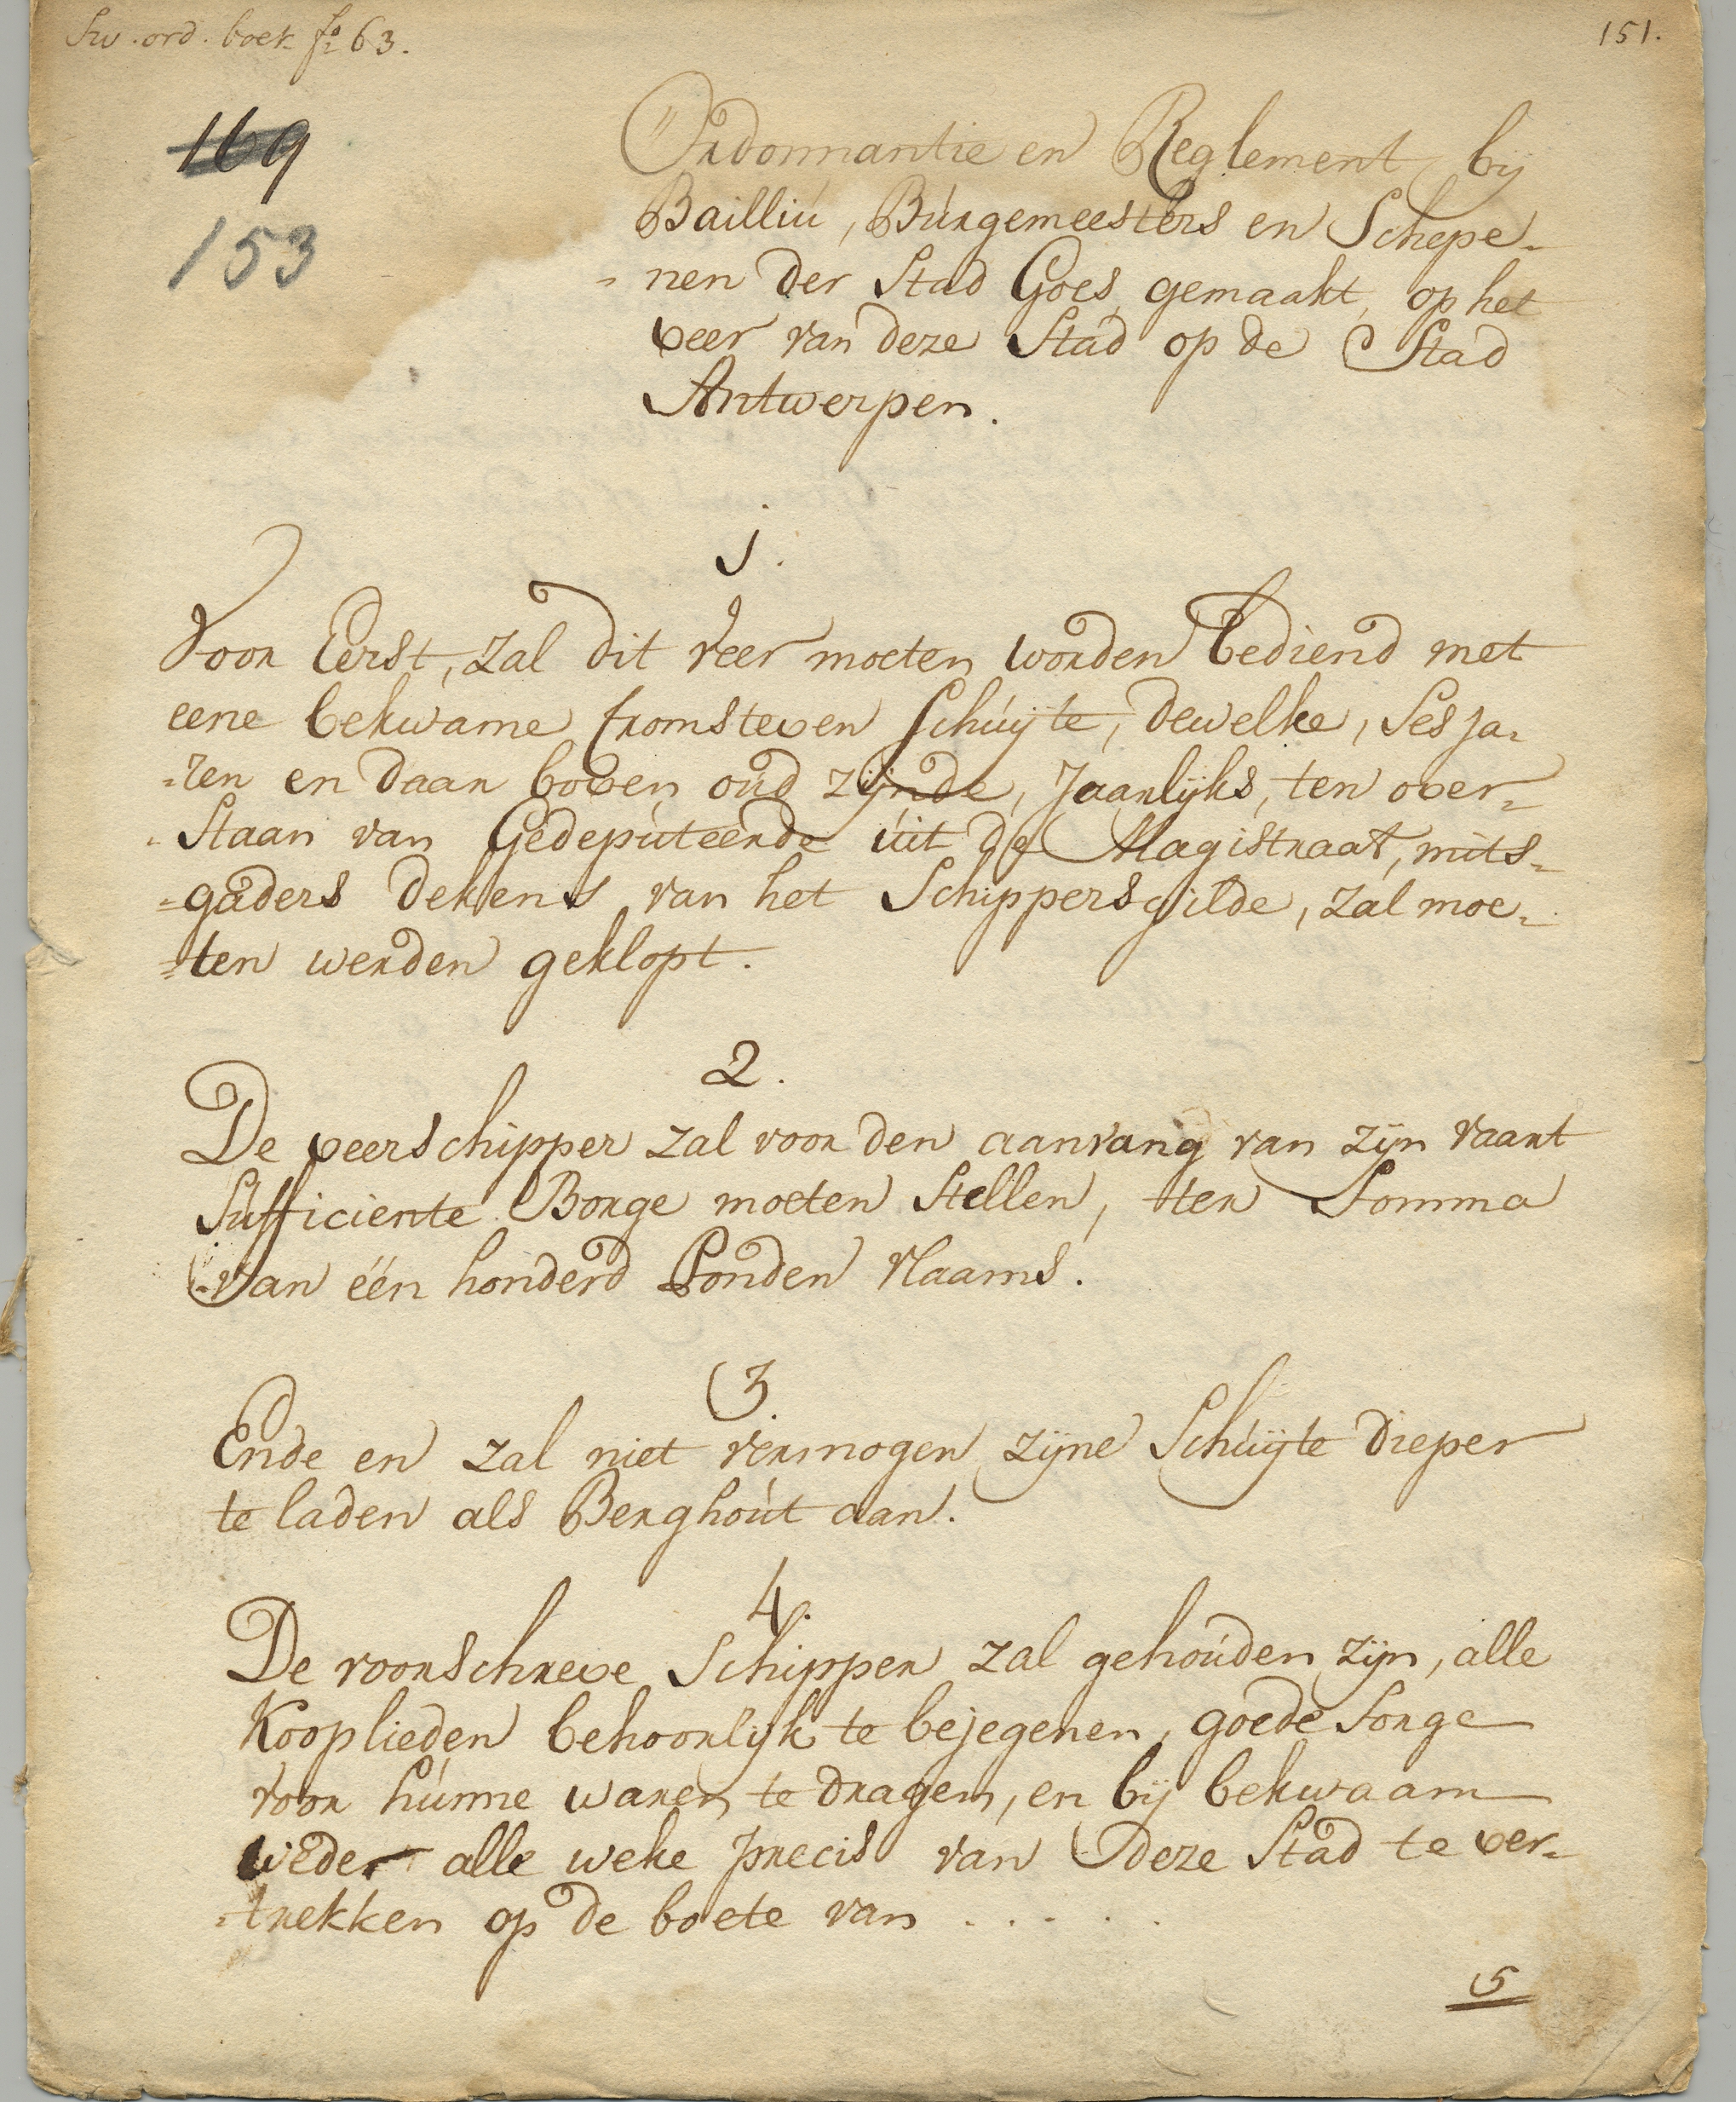 Sw. ord. boek fo 63.
151.
169
153
Ordonnantie en Reglement bij
Bailliú, Búrgemeesters en Schepe-
-nen der Stad Goes gemaakt, op het
veer van deze Stad op de Stad
Antwerpen.
1.
Voor Eerst, zal dit veer moeten worden bediend met
eene bekwame kromsteven Schúijte, dewelke, Ses ja-
-ren en daar boven oúd zijnde, Jaarlijks, ten over-
-Staan van Gedepúteerde úit de Magistraat, mits-
-gaders dekens van het Schippersgilde, zal moe-
-ten werden geklopt.
2.
De veerschipper zal voor den aanvang van zijn vaart
Sufficiente Borge moeten Stellen, ter Somma
-van één honderd Ponden vlaams.
3.
Ende en zal niet vermogen zijne Schúijte dieper
te laden als Berghoút aan.
4.
De voorschreve Schipper zal gehoúden zijn, alle
Kooplieden behoorlijk te bejegenen, goede Sorge
voor húnne waren te dragen, en bij bekwaam
weder alle weke precis van deze Stad te ver-
-trekken op de boete van . . . . .
5